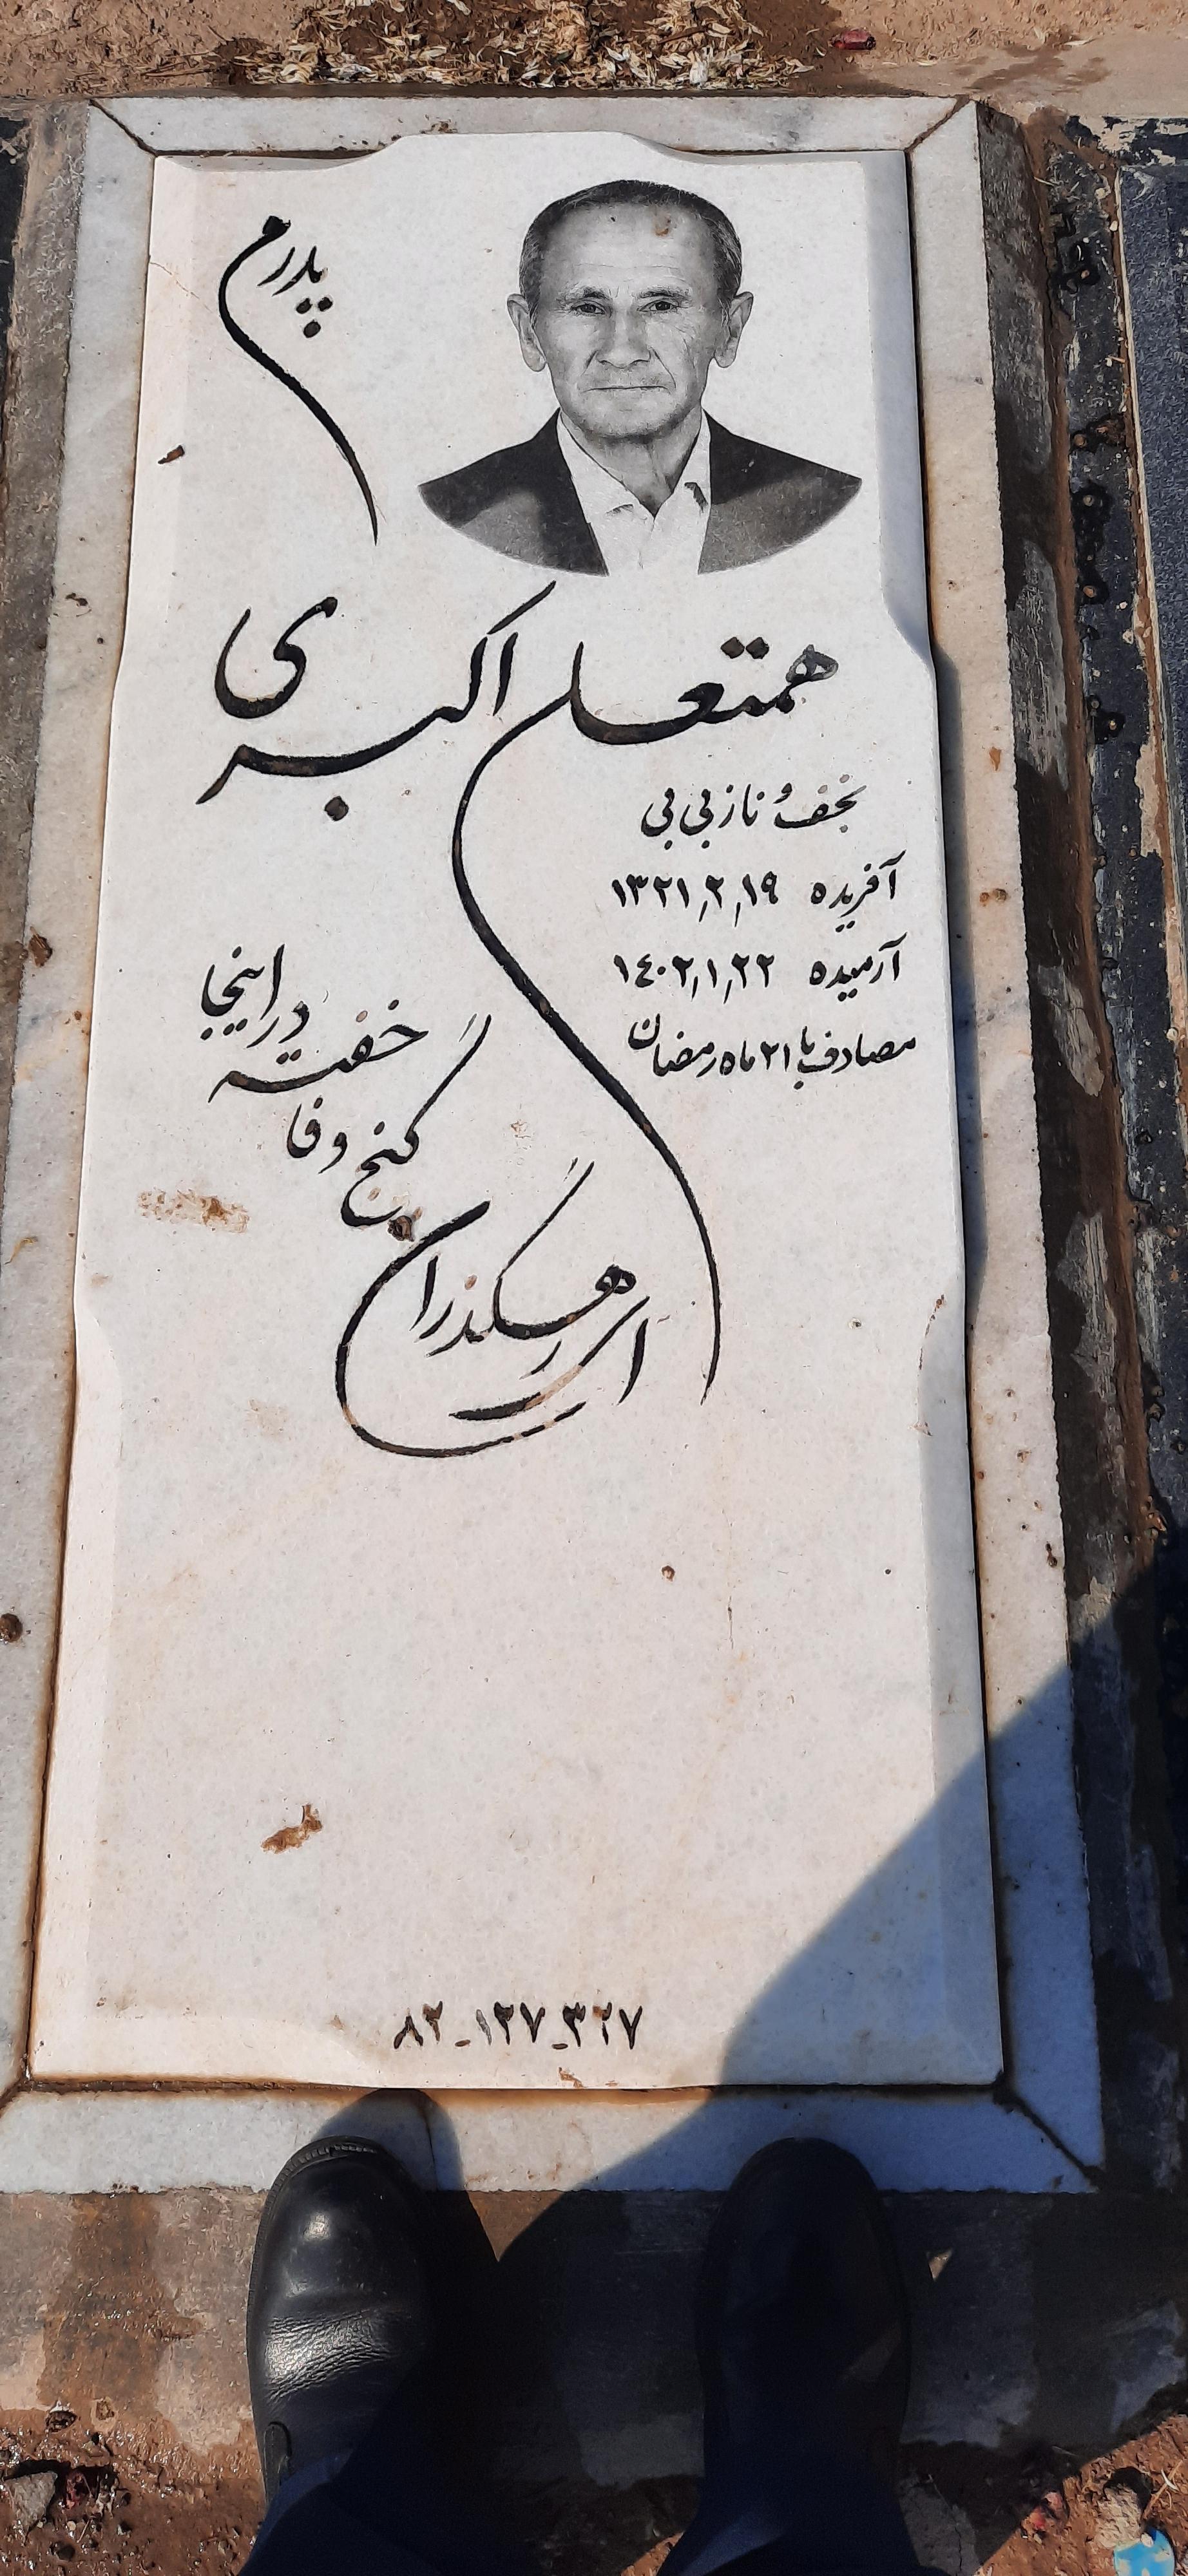 پدرم
همتعلی اکبری
نجف و ناز بی بی
آفریده ۱۳۲۱,۲,۱۹
آرمیده ۱٤۰۲,۱,۲۲
مصادف با ۲۱ ماه رمضان
ای رهگذران
گنج وفا
خفته
در اینجا
۸۲_۱۲۷_۳۲۷